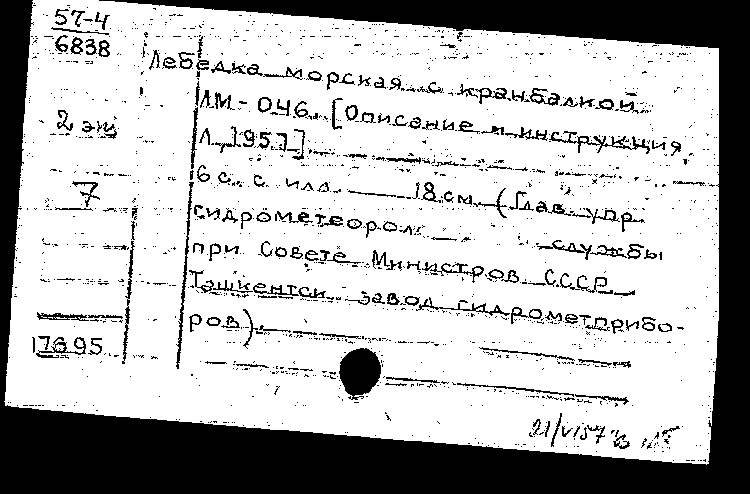 57-4
6838
2 экз
7
17695
Лебедка морская с кранбалкой
ЛМ-046. [Описание и инструкция.
Л., 1957].
6 с. с илл. 18 см. (Глав. упр.
гидрометеорол. службы
при Совете Министров СССР.
Ташкентск. завод гидрометприбо-
ров).
21/VI57